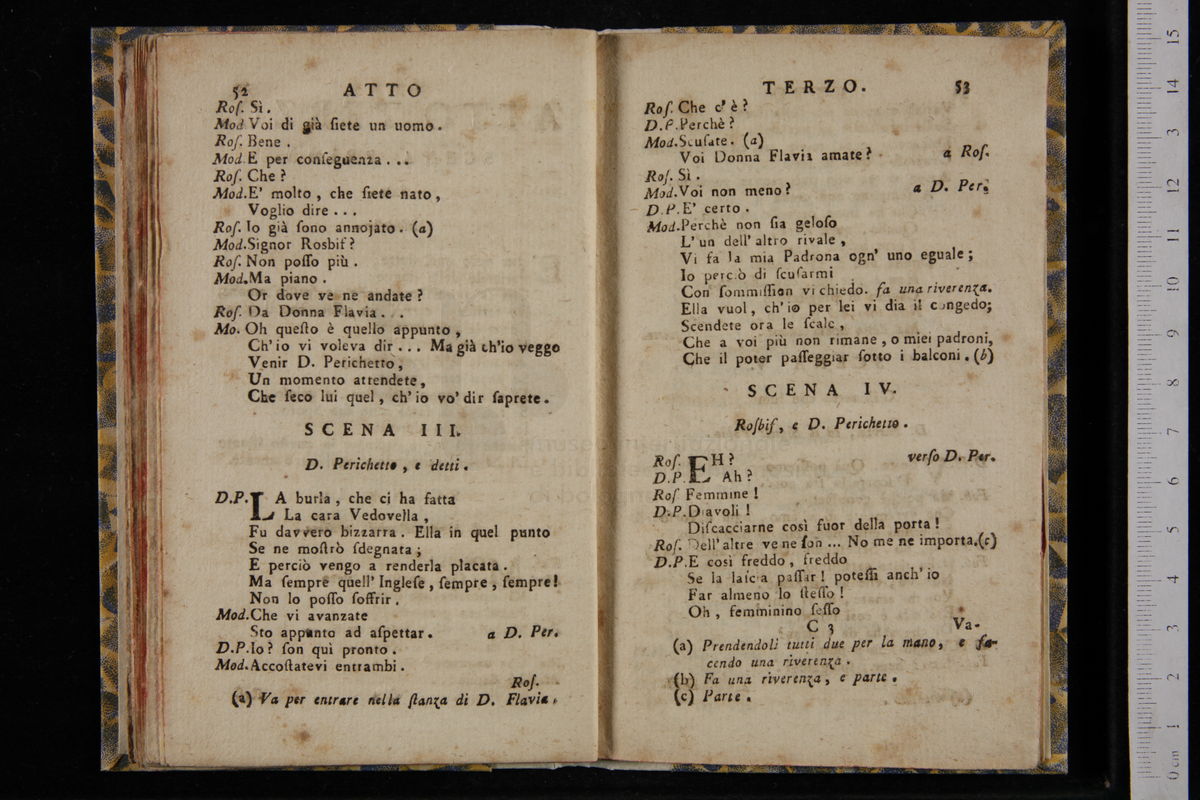 52 ATTO
Roſ. Sì.
Mod. Voi di già ſiete un uomo.
Roſ. Bene.
Mod. E per conſeguenza...
Roſ. Che?
Mod. E' molto, che ſiete nato,
Voglio dire...
Roſ. Io già ſono annojato. (a)
Mod. Signor Rosbif?
Roſ. Non poſſo più.
Mod. Ma piano.
Or dove ve ne andate?
Roſ. Da Donna Flavia...
Mo. Oh queſto è quello appunto,
Ch' io vi voleva dir... Ma già ch'io veggo
Venir D. Perichetto,
Un momento attendete,
Che ſeco lui quel, ch' io vo' dir ſaprete.
SCENA III.
D. Perichetto, e detti.
D.P. LA burla, che ci ha fatta
La cara Vedovella,
Fu davvero bizzarra. Ella in quel punto
Se ne moſtrò ſdegnata;
E perciò vengo a renderla placata.
Ma ſempre quell' Ingleſe, ſempre, ſempre!
Non lo poſſo ſoffrir.
Mod. Che vi avanzate
Sto appunto ad aſpettar. a D. Per.
D.P. Io? ſon quì pronto.
Mod. Accoſtatevi entrambi.
Roſ.
(a) Va per entrare nella ſtanza di D. Flavia.
TERZO. 53
Roſ. Che c' è?
D.P. Perchè?
Mod. Scuſate. (a)
Voi Donna Flavia amate? a Roſ.
Roſ. Sì.
Mod. Voi non meno? a D. Per.
D.P. E' certo.
Mod. Perchè non ſia geloſo
L' un dell' altro rivale,
Vi fa la mia Padrona ogn' uno eguale;
Io perciò di ſcuſarmi
Con ſommiſſion vi chiedo. fa una riverenza.
Ella vuol, ch' io per lei vi dia il congedo;
Scendete ora le ſcale,
Che a voi più non rimane, o miei padroni,
Che il poter paſſeggiar ſotto i balconi. (b)
SCENA IV.
Roſbif, e D. Perichetto.
Roſ. EH? verſo D. Per.
D.P. Ah?
Roſ Femmine!
D.P. Diavoli!
Diſcacciarne così fuor della porta!
Roſ. Dell' altre ve ne ſon... No me ne importa. (c)
D.P. E così freddo, freddo
Se la laſcia paſſar! poteſſi anch' io
Far almeno lo ſteſſo!
Oh, femminino ſeſſo
C 3 Va-
(a) Prendendoli tutti due per la mano, e fa-
cendo una riverenza.
(b) Fa una riverenza, e parte.
(c) Parte.
0 cm 1 2 3 4 5 6 7 8 9 10 11 12 13 14 15